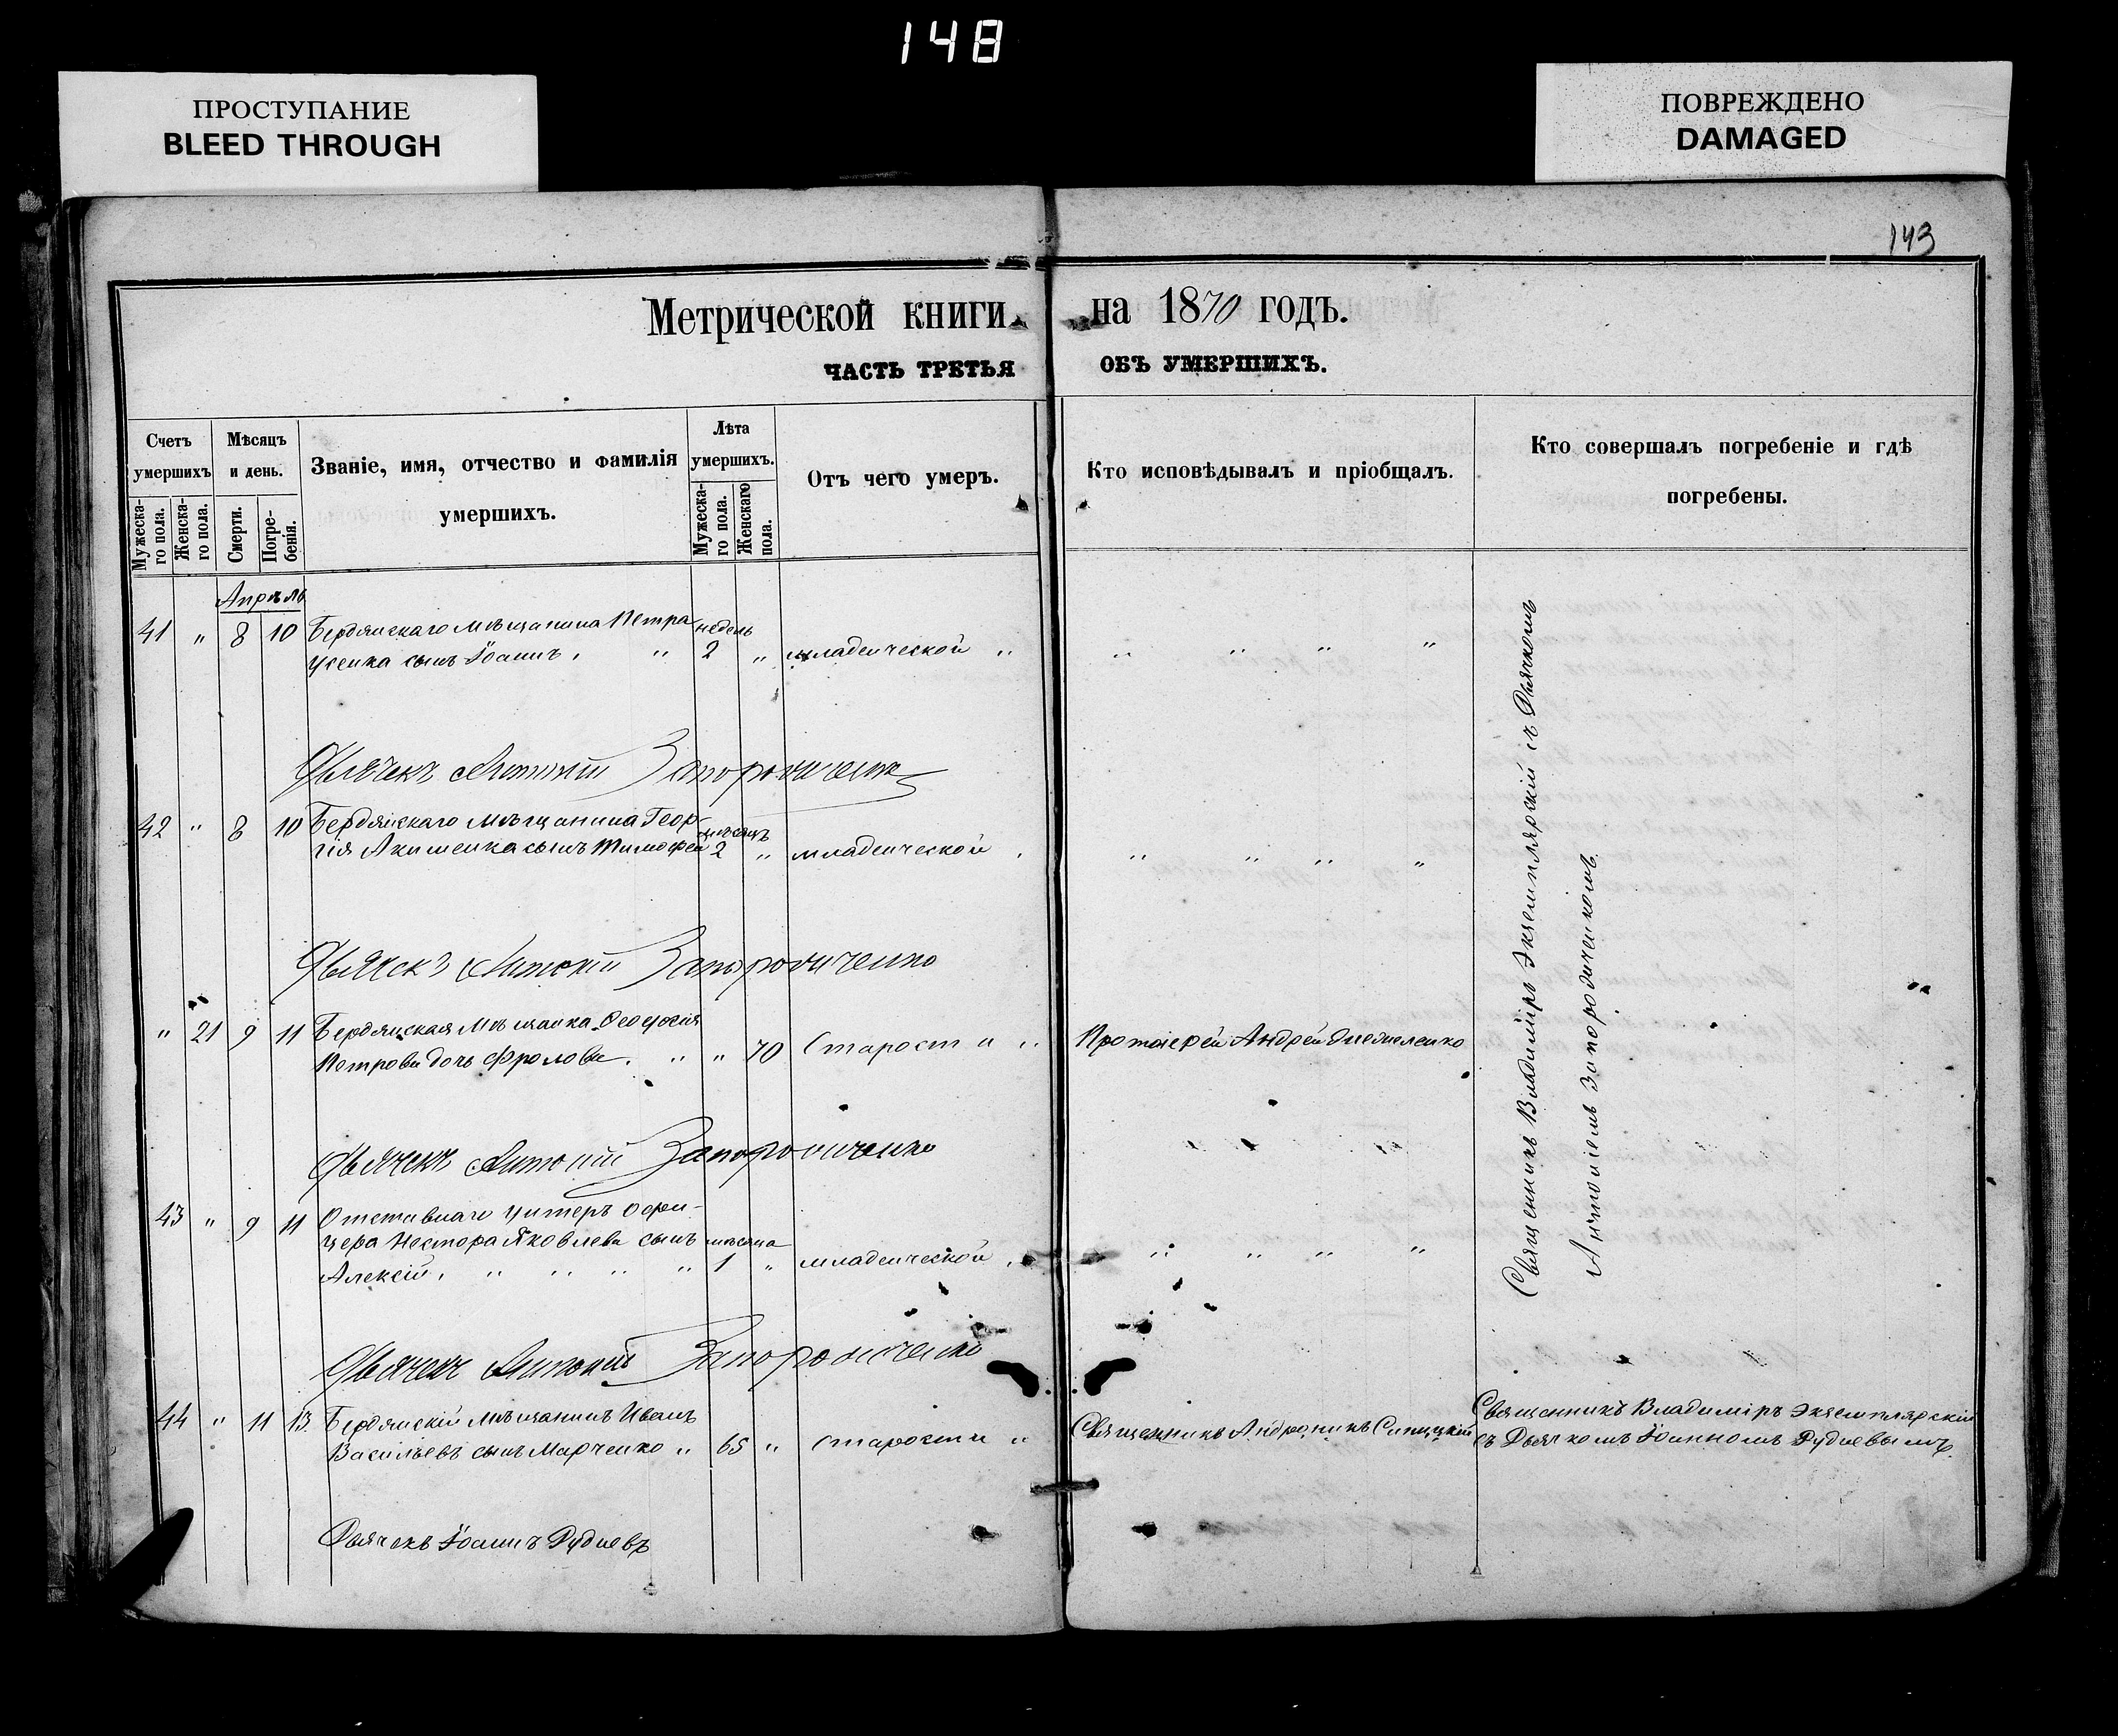 148
ПРОСТУПАНИЕ
BLEED THROUGH
ПОВРЕЖДЕНО
DAMAGED
143
Метрической книги на 1870 годъ.
ЧАСТЬ ТРЕТЬЯ ОБЪ УМЕРШИХЪ.
Счетъ умершихъ
Мужеска-го пола.
Женска-го пола.
Мѣсяцъ и день.
Смерти.
Погре-бенія.
Званіе, имя, отчество и фамилія
умершихъ.
Лѣта умершихъ.
Мужеска-го пола.
Женскаго пола.
Отъ чего умеръ.
Кто исповѣдывалъ и пріобщалъ.
Кто совершалъ погребеніе и гдѣ
погребены.
Апрѣль
41 " 8 10 Бердянскаго мѣщанина Петра недель
Усенка сынъ Іоаннъ. " 2 " младенческой " " " " "
Дьячекъ Антоній Запорожченко
42 " 8 10 Бердянскаго мѣщанина Геор- мѣсяцъ
гія Акименка сынъ Тимофей 2 " младенческой " " " "
Дьячекъ Антоній Запорожченко
" 21 9 11 Бердянская мѣщанка Феодосія
Петрова дочь Фролова. " " 70 Старости " Протоіерей Андрей
Дьячекъ Антоній Запорожченко
43 " 9 11 Отставнаго унтеръ офи-
цера Нестора Яковлева сынъ мѣсяца
Алексій. " " " " 1 " младенческой " " " "
Дьячекъ Антоній Запорожченко
Священникъ Владиміръ Экземплярскій съ Дьячкомъ
Антоніемъ Запорожченкомъ.
44 " 11 13 Бердянскій мѣщанинъ Иванъ
Васильевъ сынъ Марченко " 65 " Старости " Священникъ Андроникъ Синицкій
Священникъ Владиміръ Экземплярскій
съ Дьячкомъ Іоанномъ Рудневымъ.
Дьячекъ Іоаннъ Рудневъ